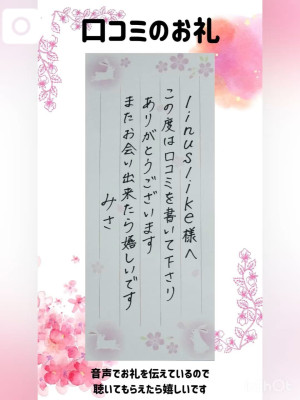 口コミのお礼
linuslike様へ
この度は口コミを書いて下さり
ありがとうございます
またお会い出来たら嬉しいです
みさ
音声でお礼を伝えているので
聴いてもらえたら嬉しいです